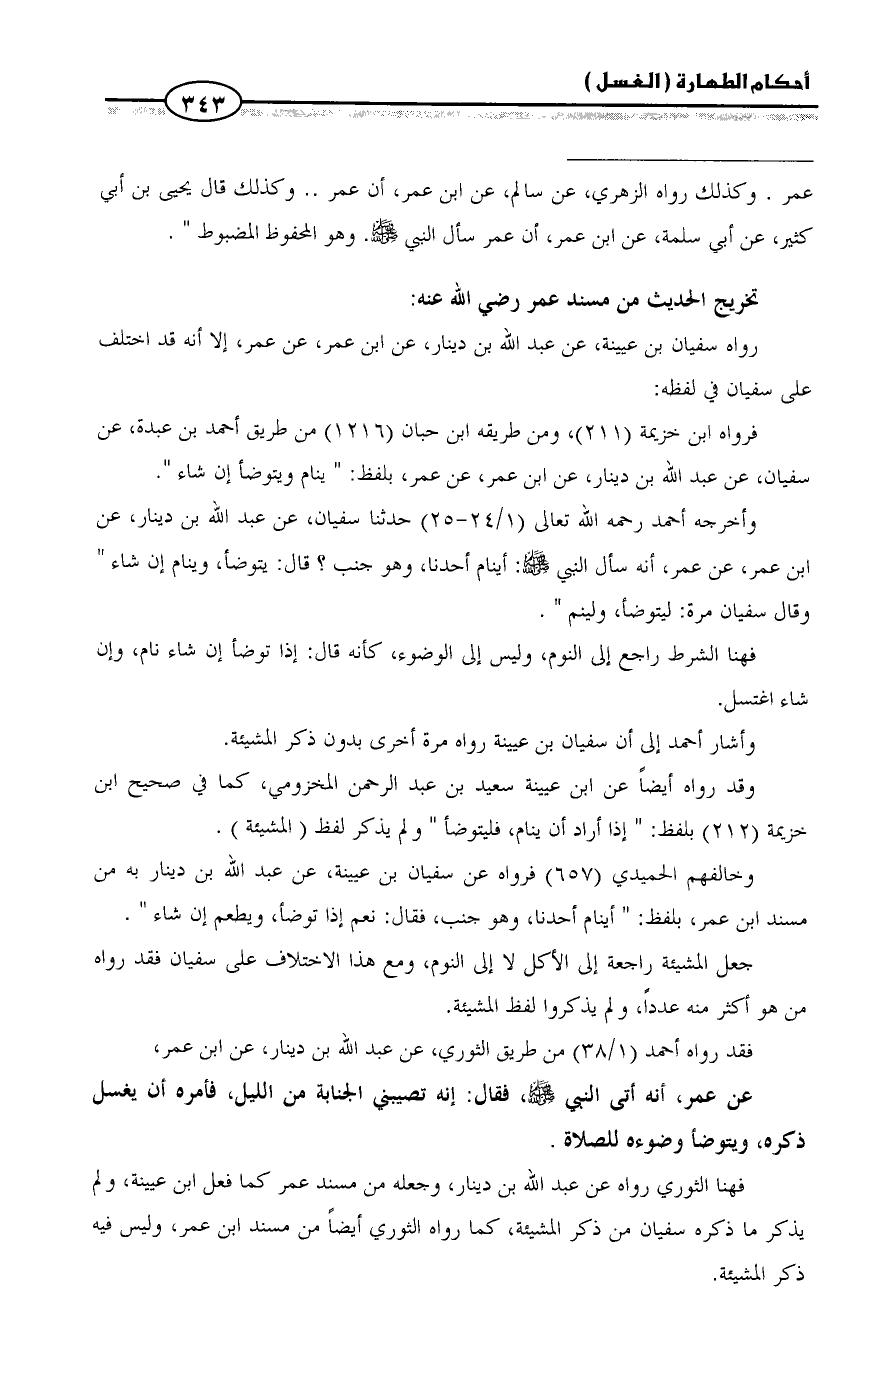 أحكام الطهارة (الغسل)
٣٤٣
عمر . وكذلك رواه الزهري، عن سالم، عن ابن عمر، أن عمر .. وكذلك قال يحيى بن أبي
كثير، عن أبي سلمة، عن ابن عمر، أن عمر سأل النبي ﷺ. وهو المحفوظ المضبوط " .
تخريج الحديث من مسند عمر رضي الله عنه:
رواه سفيان بن عيينة، عن عبد الله بن دينار، عن ابن عمر، عن عمر، إلا أنه قد اختلف
على سفيان في لفظه:
فرواه ابن خزيمة (٢١١)، ومن طريقه ابن حبان (١٢١٦) من طريق أحمد بن عبدة، عن
سفيان، عن عبد الله بن دينار، عن ابن عمر، عن عمر، بلفظ: " ينام ويتوضأ إن شاء ".
وأخرجه أحمد رحمه الله تعالى (٢٤/١-٢٥) حدثنا سفيان، عن عبد الله بن دينار، عن
ابن عمر، عن عمر، أنه سأل النبي ﷺ: أينام أحدنا، وهو جنب ؟ قال: يتوضأ، وينام إن شاء "
وقال سفيان مرة: ليتوضأ، ولينم " .
فهنا الشرط راجع إلى النوم، وليس إلى الوضوء، كأنه قال: إذا توضأ إن شاء نام، وإن
شاء اغتسل.
وأشار أحمد إلى أن سفيان بن عيينة رواه مرة أخرى بدون ذكر المشيئة.
وقد رواه أيضاً عن ابن عيينة سعيد بن عبد الرحمن المخزومي، كما في صحيح ابن
خزيمة (٢١٢) بلفظ: " إذا أراد أن ينام، فليتوضأ " ولم يذكر لفظ ( المشيئة ) .
وخالفهم الحميدي (٦٥٧) فرواه عن سفيان بن عيينة، عن عبد الله بن دينار به من
مسند ابن عمر، بلفظ: " أينام أحدنا، وهو جنب، فقال: نعم إذا توضأ، ويطعم إن شاء " .
جعل المشيئة راجعة إلى الأكل لا إلى النوم، ومع هذا الاختلاف على سفيان فقد رواه
من هو أكثر منه عدداً، ولم يذكروا لفظ المشيئة.
فقد رواه أحمد (٣٨/١) من طريق الثوري، عن عبد الله بن دينار، عن ابن عمر،
عن عمر، أنه أتى النبي ﷺ، فقال: إنه تصيبني الجنابة من الليل، فأمره أن يغسل
ذكره، ويتوضأ وضوءه للصلاة .
فهنا الثوري رواه عن عبد الله بن دينار، وجعله من مسند عمر كما فعل ابن عيينة، ولم
يذكر ما ذكره سفيان من ذكر المشيئة، كما رواه الثوري أيضاً من مسند ابن عمر، وليس فيه
ذكر المشيئة.